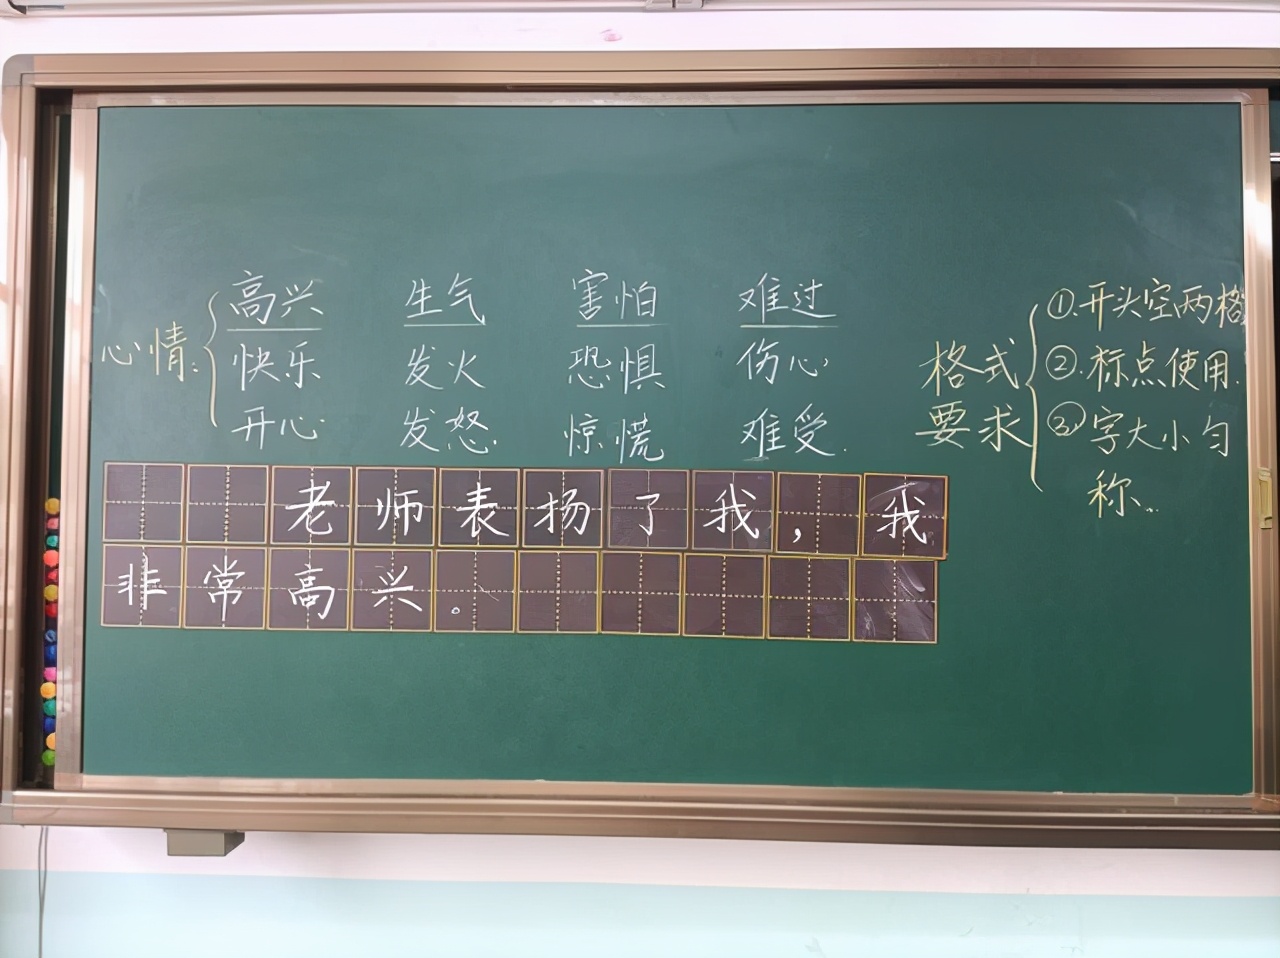 心情:
高兴 生气 害怕 难过
快乐 发火 恐惧 伤心
开心 发怒 惊慌 难受.
格式
要求
①.开头空两格
②.标点使用.
③.字大小匀
称.
老师表扬了我，我
非常高兴。